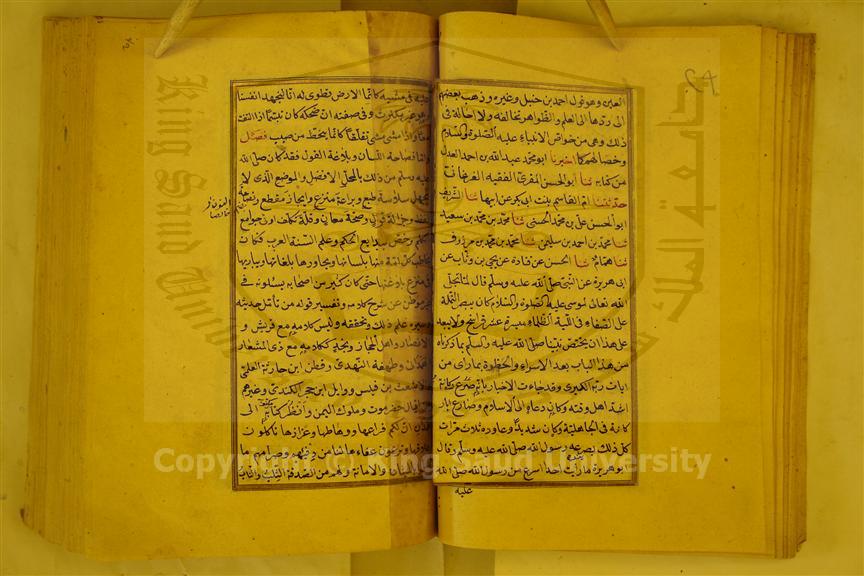 العين وهو قول احمد بن حنبل وغيره وذهب بعضهم
الى ردها الى العلم والظواهر تخالفه ولا احالة فى
ذلك وهى من خواص الانبياء عليه الصلوة والسلام
وخصالهم كما اخبرنا ابو محمد عبد الله بن احمد العدل
من كتابه ثنا ابو الحسن المقرئ الفقيه الفرغانى
حدثتنا ام القاسم بنت ابى بكر عن ابيها ثنا الشريف
ابو الحسن على بن محمد الحسنى ثنا محمد بن محمد بن سعيد
ثنا محمد بن احمد بن سليمن ثنا محمد بن محمد بن مرزوق
ثنا همام ثنا الحسن عن قتادة عن يحيى بن وثاب عن
ابى هريرة عن النبى صلى الله عليه وسلم قال لما تجلى
الله تعالى لموسى عليه الصلوة والسلام كان يبصر النملة
على الصفا فى الليلة الظلماء مسيرة عشرة فراسخ ولا يبعد
على هذا ان يختص نبينا صلى الله عليه وسلم بما ذكرناه
من هذا الباب بعد الاسراء والحظوة بما راى من
ايات ربه الكبرى وقد جاءت الاخبار بانه صرع ركانة
اشد اهل وقته وكان دعاه الى الاسلام وصارع ابا ر
كانة فى الجاهلية وكان شديدا وعاوده ثلاث مرات
كل ذلك يصرعه رسول الله صلى الله عليه وسلم وقال
ابو هريرة ما رايت احدا اسرع من رسول الله صلى الله
عليه
عليه فى مشيه كانما الارض تطوى له انا لنجهد انفسنا
وهو غير مكترث وفى صفته ان ضحكه كان تبسما اذا التفت
معا واذا مشى مشى تقلعا كانما ينحط من صبب فصل
واما فصاحة اللسان وبلاغة القول فقد كان صلى الله
عليه وسلم من ذلك بالمحل الافضل والموضع الذى لا
يجهل سلاسة طبع وبراعة منزع وايجاز مقطع
لفظ وجزالة قول وصحة معان وقلة تكلف اوتى جوامع
الكلم وخص ببدايع الحكم وعلم السنة العرب فكان
يخاطب كل امة منها بلسانها ويحاورها بلغاتها ويباريها
فى منزع بلاغتها حتى كان كثير من اصحابه يسئلونه فى
غير موطن عن شرح كلامه وتفسير قوله من تامل حديثه
وسيره علم ذلك وتحققه وليس كلامه مع قريش و
الانصار واهل الحجاز ونجد ككلامه مع ذى المشعار
الهمدانى وطهفة النهدى وقطن ابن حارثة العليمى
والاشعث بن قيس ووايل ابن حجر الكندى وغيرهم
من اقيال حضرموت وملوك اليمن وانظر كتابه الى
همدان ان لكم فراعها ووهاطها وعزازها تاكلون
علافها وترعون عفاءها لنا من دفئهم وصرامهم ما
والامانة ولهم من الصدقة الثلب والناب
Copyright © King Saud University
King Saud University
جامعة الملك